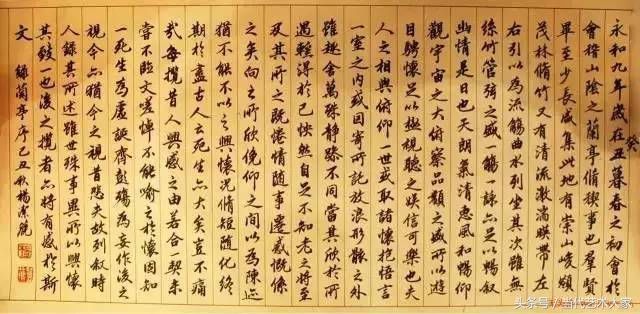 永和九年歲在丑暮春之初會於
癸
會稽山陰之蘭亭脩稧事也羣賢
畢至少長咸集此地有崇山峻領
茂林脩竹又有清流激湍映帶左
右引以為流觴曲水列坐其次雖無
絲竹管弦之盛一觴一詠亦足以暢敘
幽情是日也天朗氣清惠風和暢仰
觀宇宙之大俯察品類之盛所以遊
目騁懷足以極視聽之娛信可樂也夫
人之相與俯仰一世或取諸懷抱悟言
一室之內或因寄所託放浪形骸之外
雖趣舍萬殊靜躁不同當其欣於所
遇暫得於己怏然自足不知老之將至
及其所之既倦情隨事遷感慨係
之矣向之所欣俛仰之間以為陳迹
猶不能不以之興懷況脩短隨化終
期於盡古人云死生亦大矣豈不痛
哉每攬昔人興感之由若合一契未
嘗不臨文嗟悼不能喻之於懷固知
一死生為虛誕齊彭殤為妄作後之
視今亦猶今之視昔悲夫故列敘時
人錄其所述雖世殊事異所以興懷
其致一也後之攬者亦將有感於斯
文 錄蘭亭序己丑秋楊
头条号 / 当代艺术大家